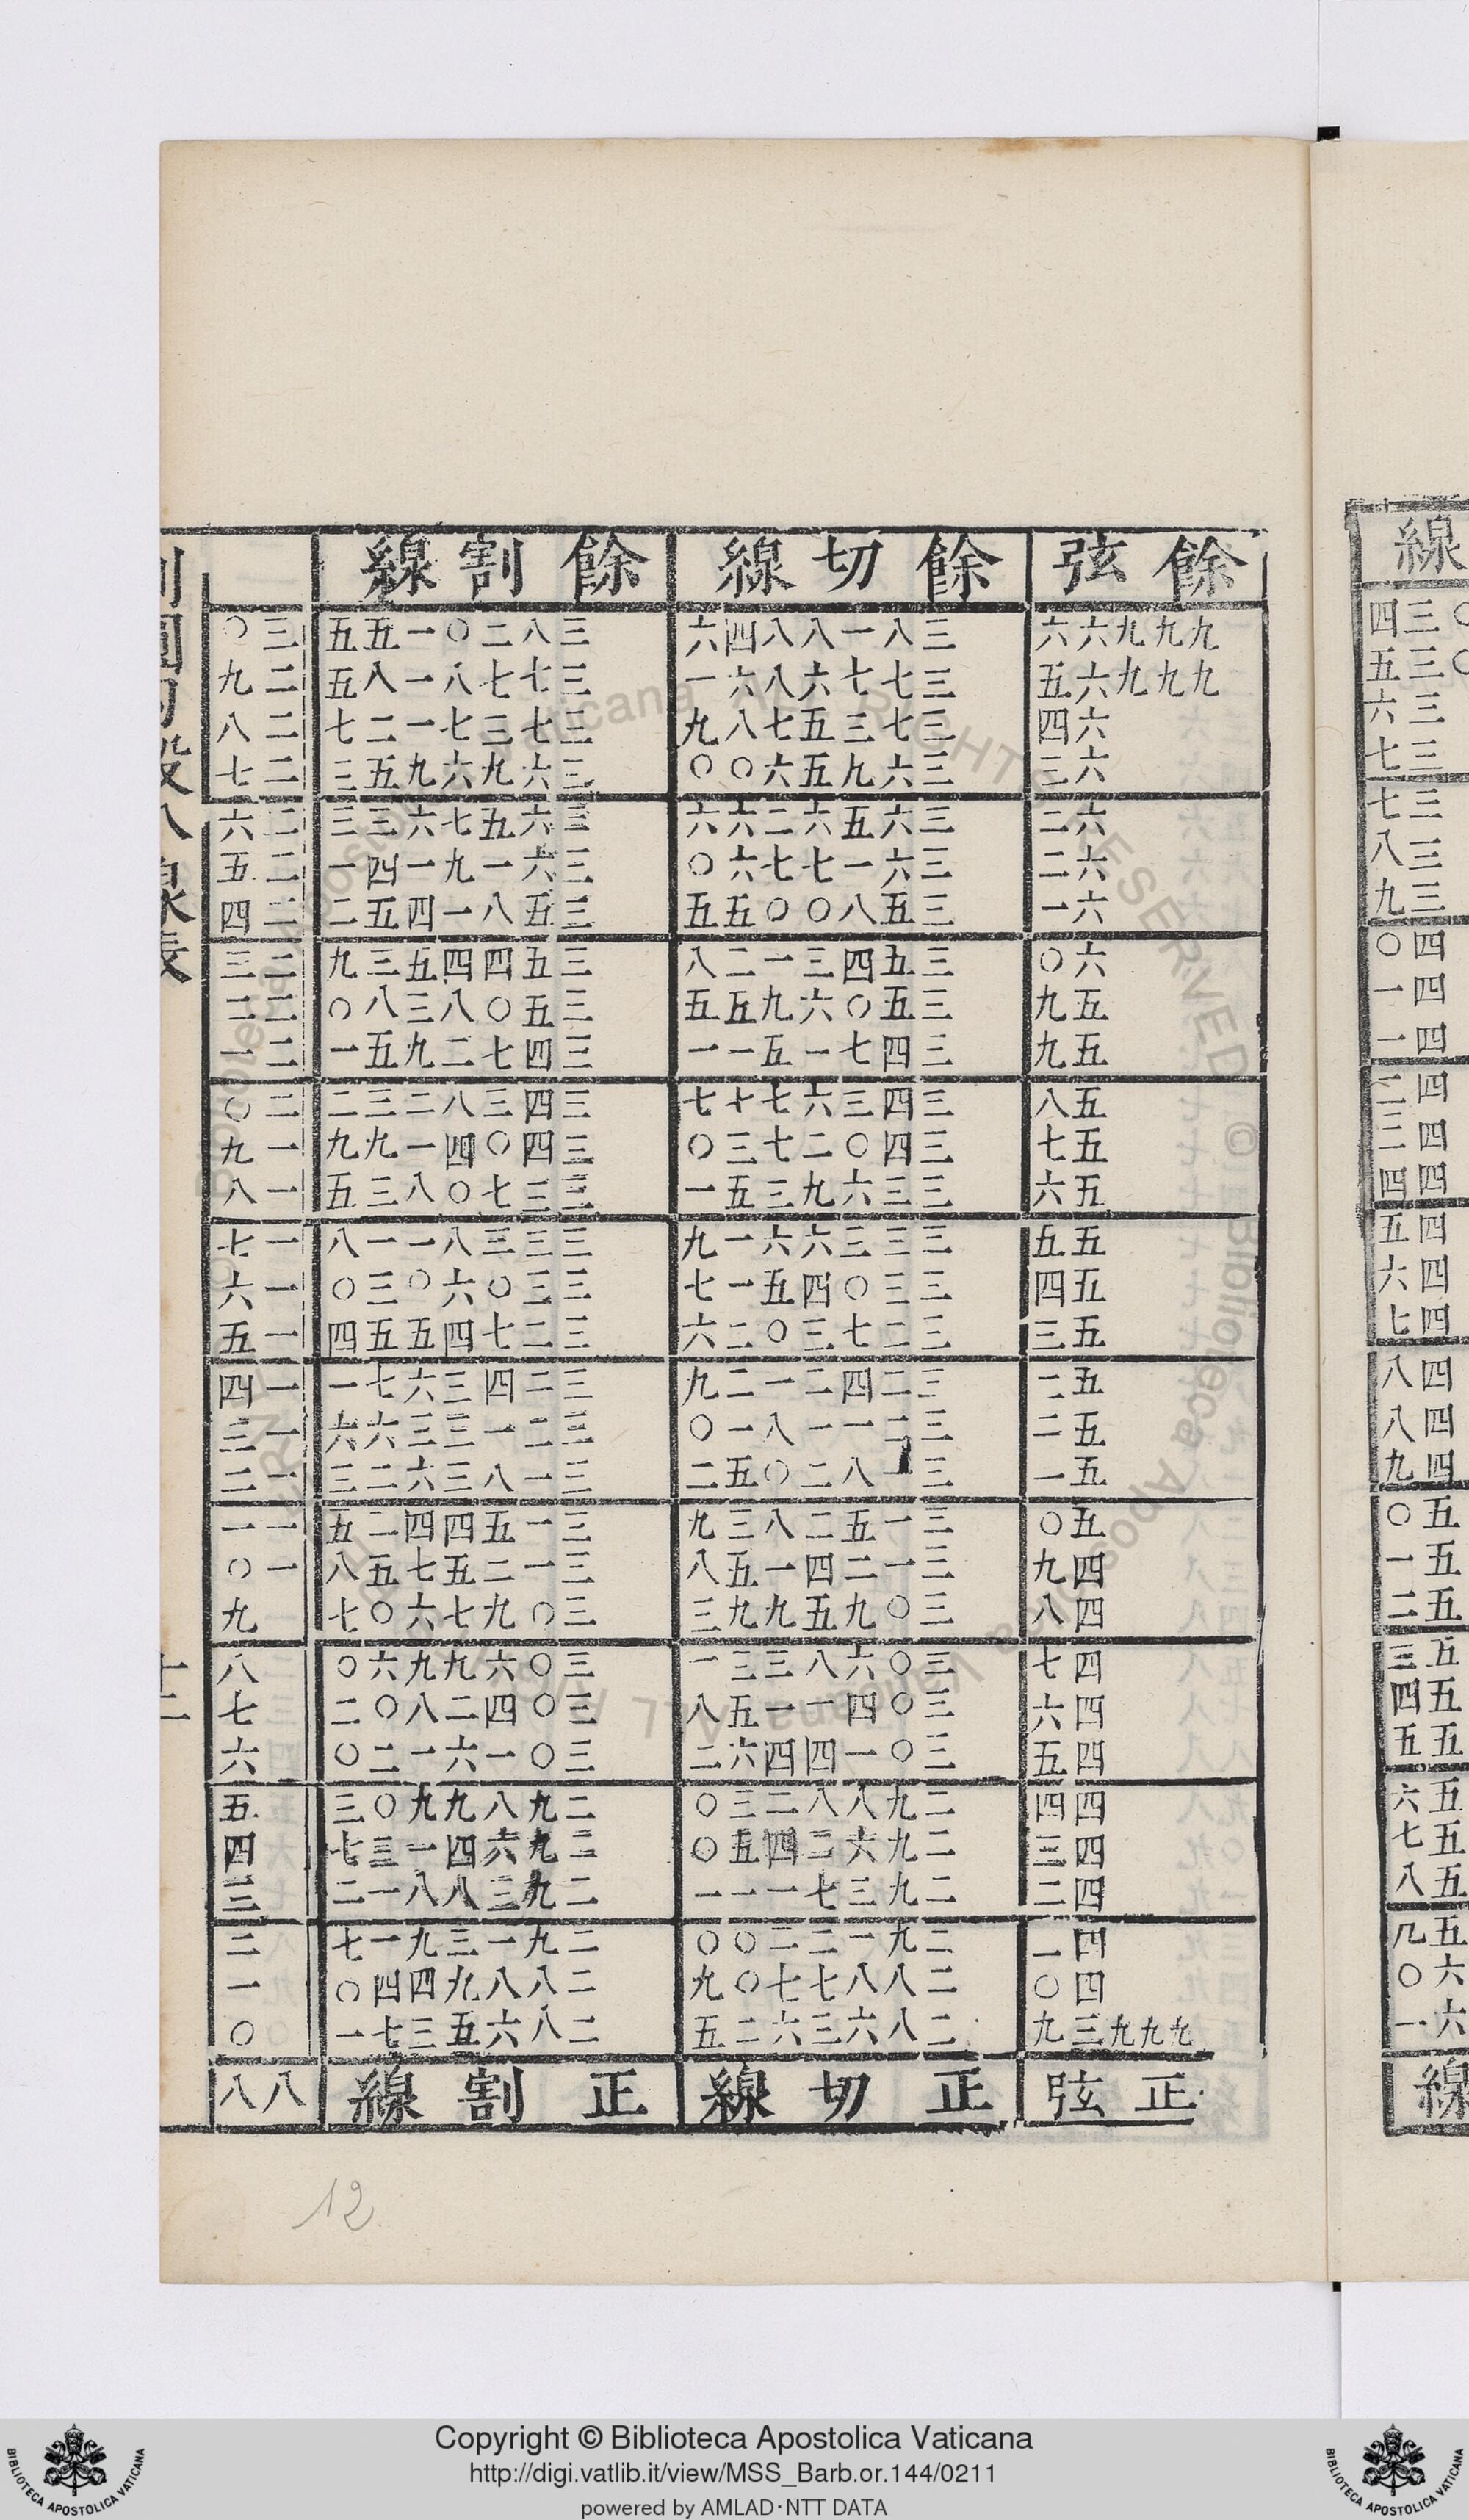 線
〇三四
〇三五
三六
三七
三七
三八
三九
四〇
四一
四一
四二
四三
四四
四五
四六
四七
四八
四八
四九
五〇
五一
五二
五三
五四
五五
五六
五七
五八
五九
六〇
六一
線
餘弦 餘切線 餘割線
九九九六六 三八一八八四六 三八二〇一五五 三〇
九九九六五 三七七六八六一 三七七八一八五 二九
六四 三七三五七八九 三七三七一二七 二八
六三 三六九五六〇〇 三六九六九五三 二七
六二 三六五六二六六 三六五七六三三 二六
六二 三六一七七六〇 三六一九一四一 二五
六一 三五八〇〇五五 三五八一四五二 二四
六〇 三五四三一二八 三五四四五三九 二三
五九 三五〇六九五五 三五〇八三八〇 二二
五九 三四七一五一一 三四七二九五一 二一
五八 三四三六七七七 三四三八二三二 二〇
五七 三四〇二七三〇 三四〇四一九九 一九
五六 三三六九三五一 三三七〇八三五 一八
五五 三三三六六一九 三三三八一一八 一七
五四 三三〇四五一七 三三〇六〇三〇 一六
五三 三二七三〇二六 三二七四五五四 一五
五二 三二四二一二九 三二四三六七一 一四
五二 三二一一八一〇 三二一三三六六 一三
五一 三一八二〇五二 三一八三六二三 一二
五〇 三一五二八三九 三一五四四二五 一一
四九 三一二四一五八 三一二五七五八 一〇
四八 三〇九五九九三 三〇九七六〇七 九
四七 三〇六八三三一 三〇六九九六〇 八
四六 三〇四一一五八 三〇四二八〇二 七
四五 三〇一四四六二 三〇一六一二〇 六
四四 二九八八二三〇 二九八九九〇三 五
四三 二九六二四五〇 二九六四一三七 四
四二 二九三七一一一 二九三八八一二 三
四一 二九一二二〇〇 二九一三九一七 二
四〇 二八八七七〇九 二八八九四四〇 一
九九九三九 二八六三六二五 二八六五三七一 〇
正弦 正切線 正割線 八八
十二
12
Copyright © Biblioteca Apostolica Vaticana
http://digi.vatlib.it/view/MSS_Barb.or.144/0211
powered by AMLAD·NTT DATA